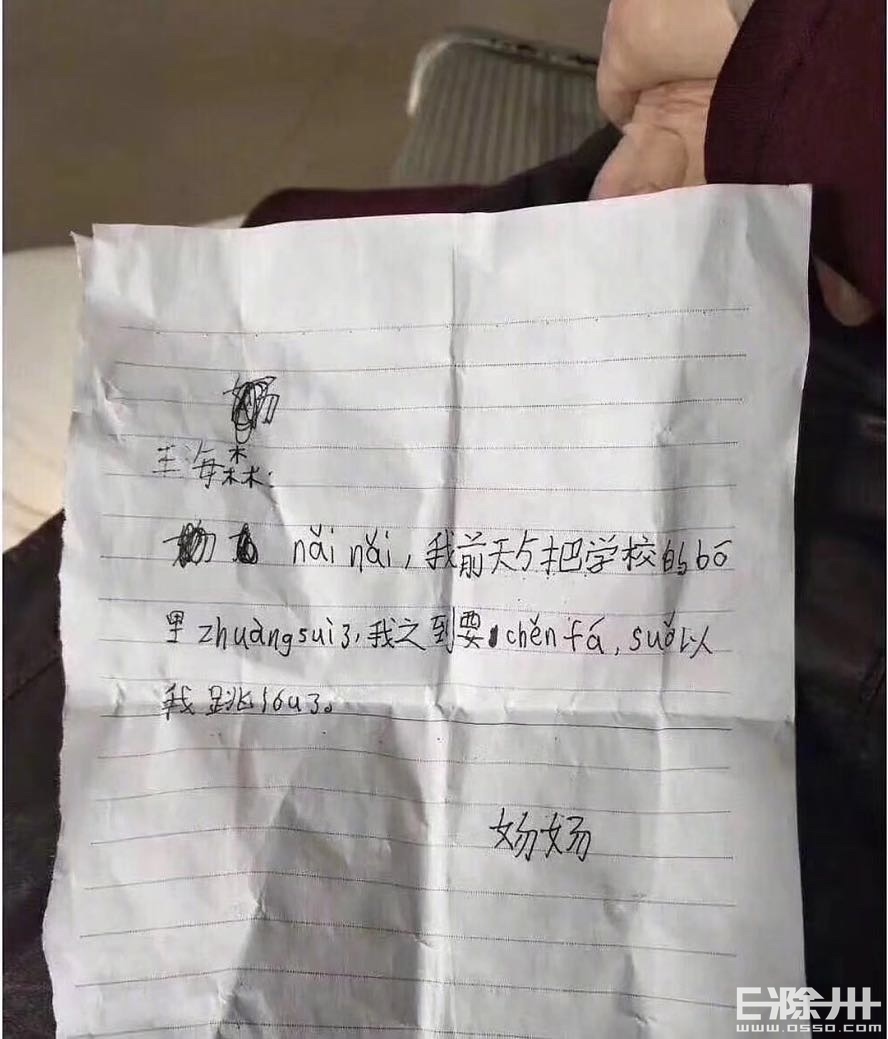 王海森:
nǎi nǎi,我前天与把学校的bō
里zhuàngsuì了,我之到要chěnfá,suǒ以
我跳lóu了。
妫妫
E滁州
www.0550.com